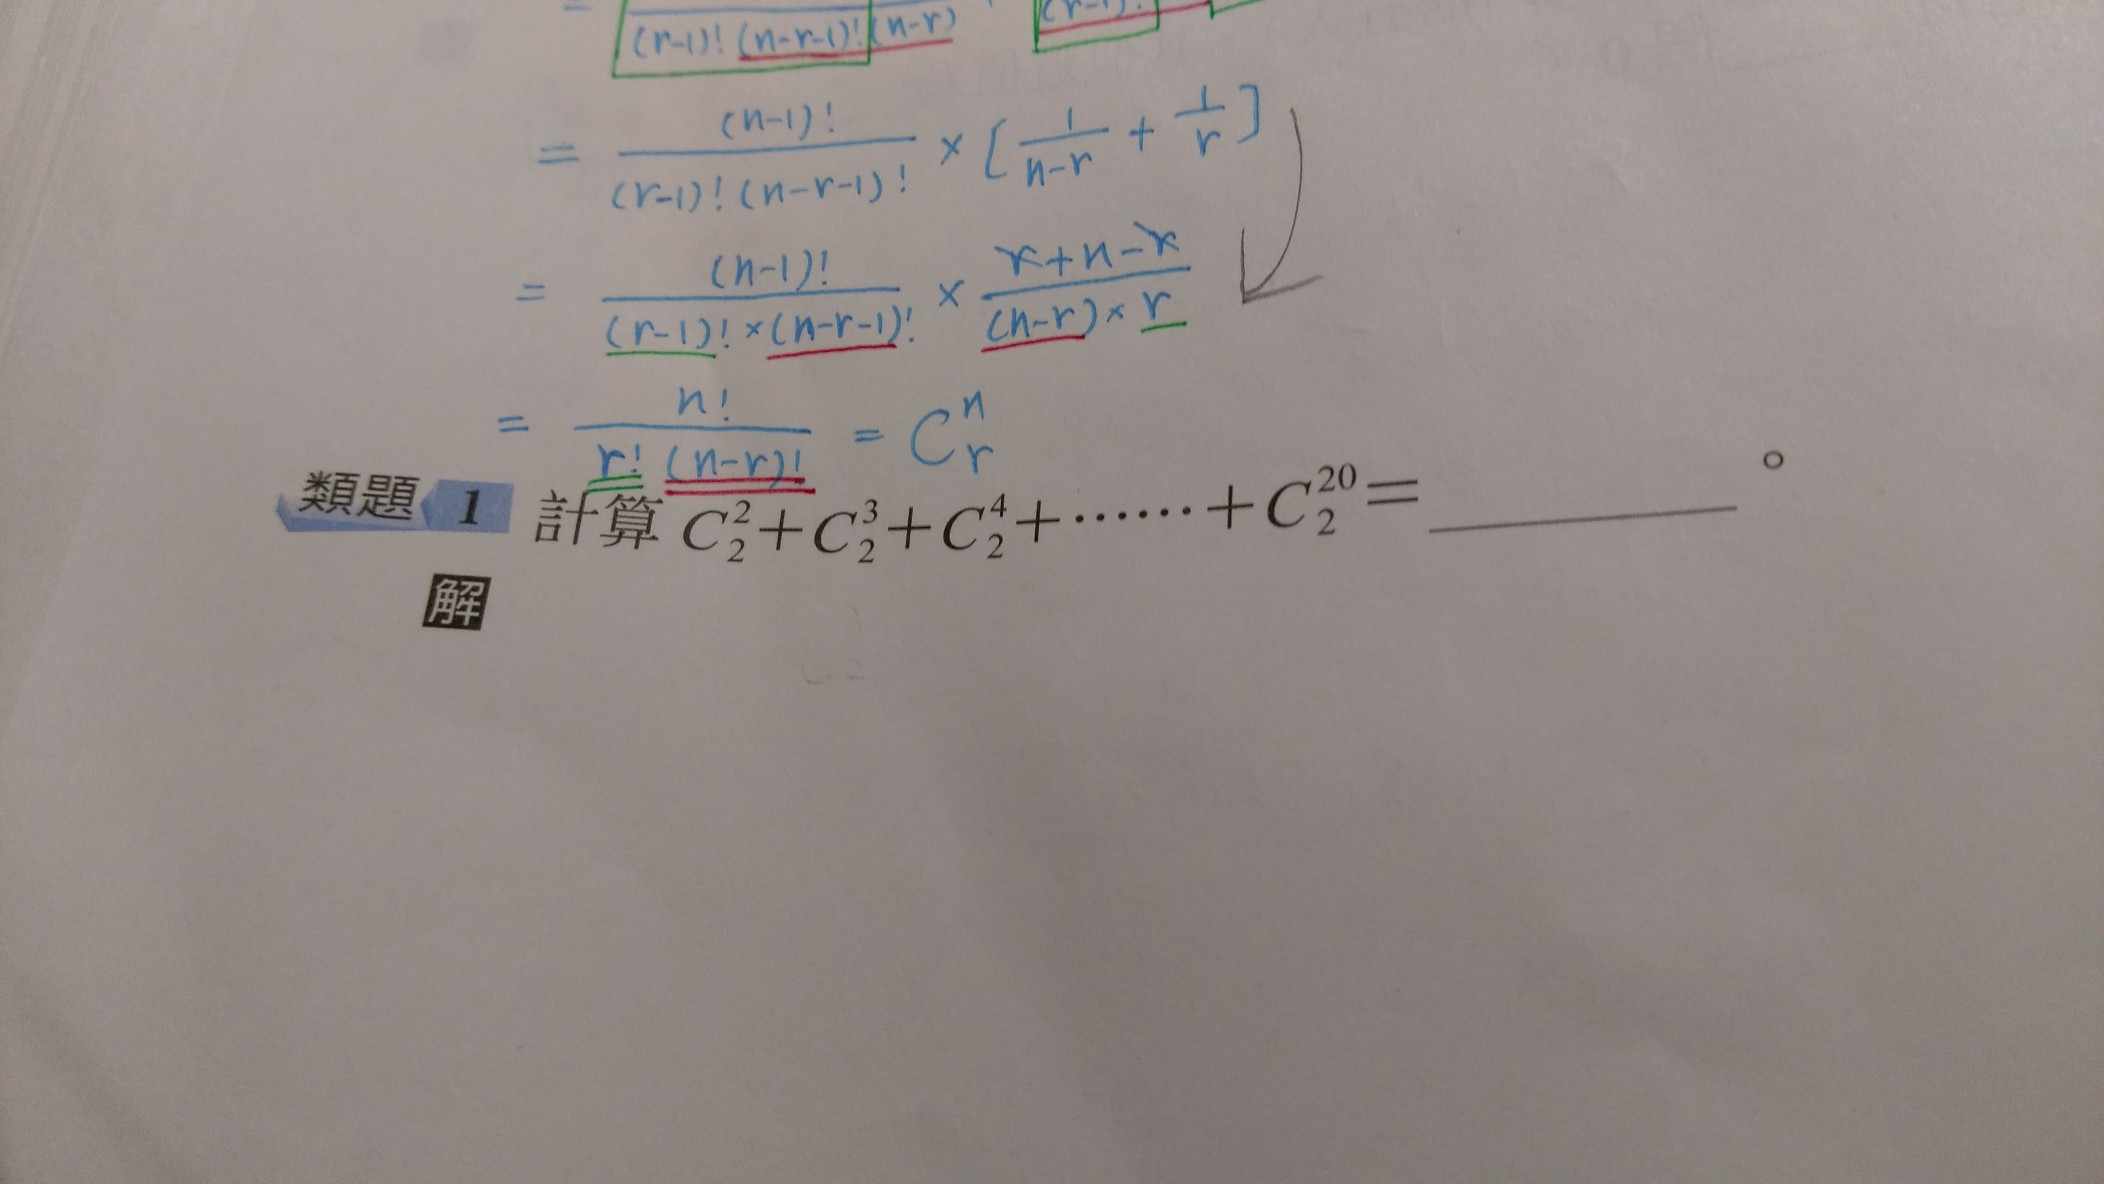 = (r-1)! (n-r-1)! (n-r) (r-1)!
= (n-1)! / (r-1)! (n-r-1)! × [ 1/n-r + 1/r ]
= (n-1)! / (r-1)! × (n-r-1)! × r+n-r / (n-r) × r
= n! / r! (n-r)! = C^n_r
類題 1 計算 C^2_2+C^3_2+C^4_2+……+C^20_2=________。
解